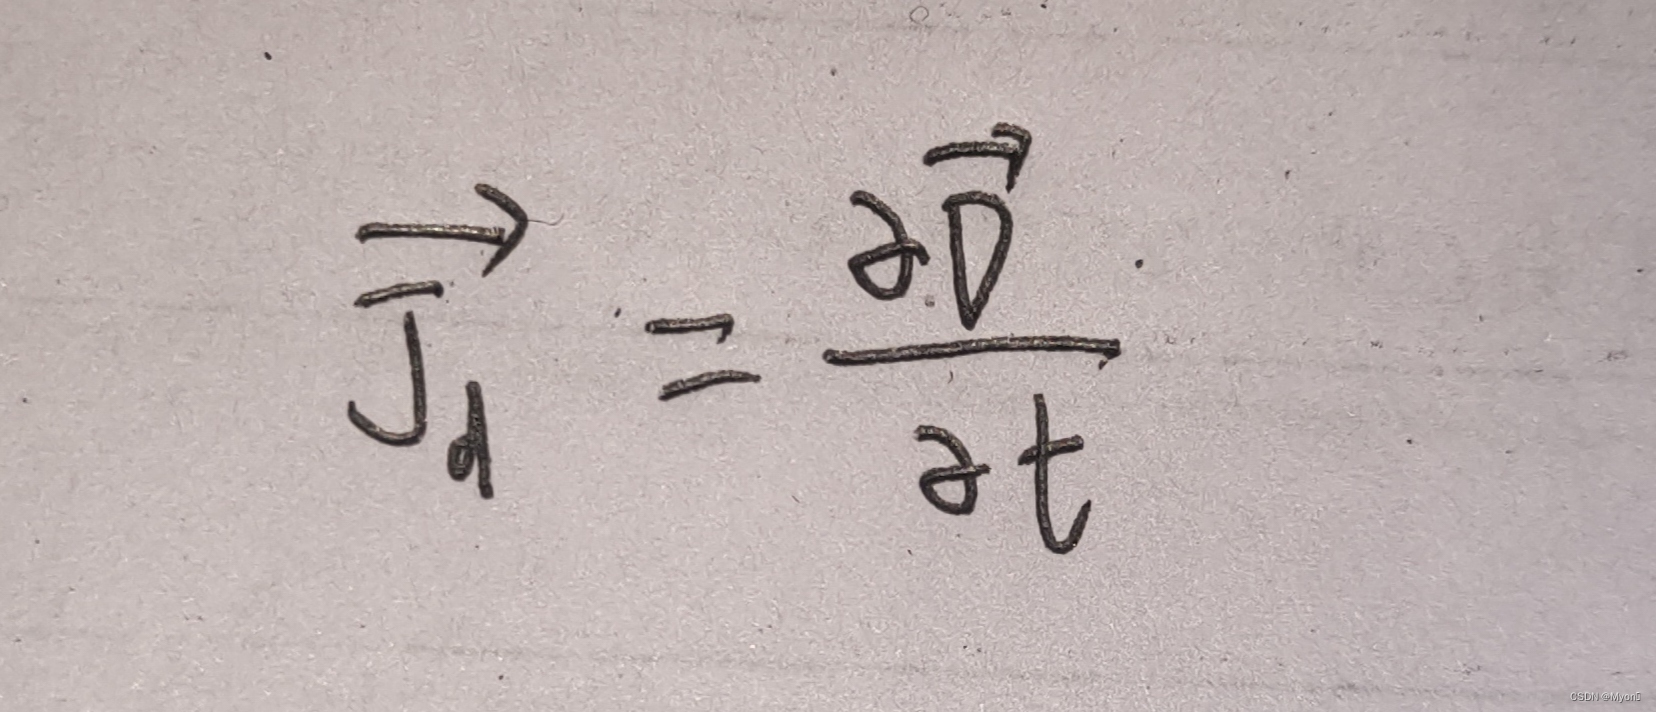 $\vec{J_d} = \frac{\partial \vec{D}}{\partial t}$
CSDN @Myon